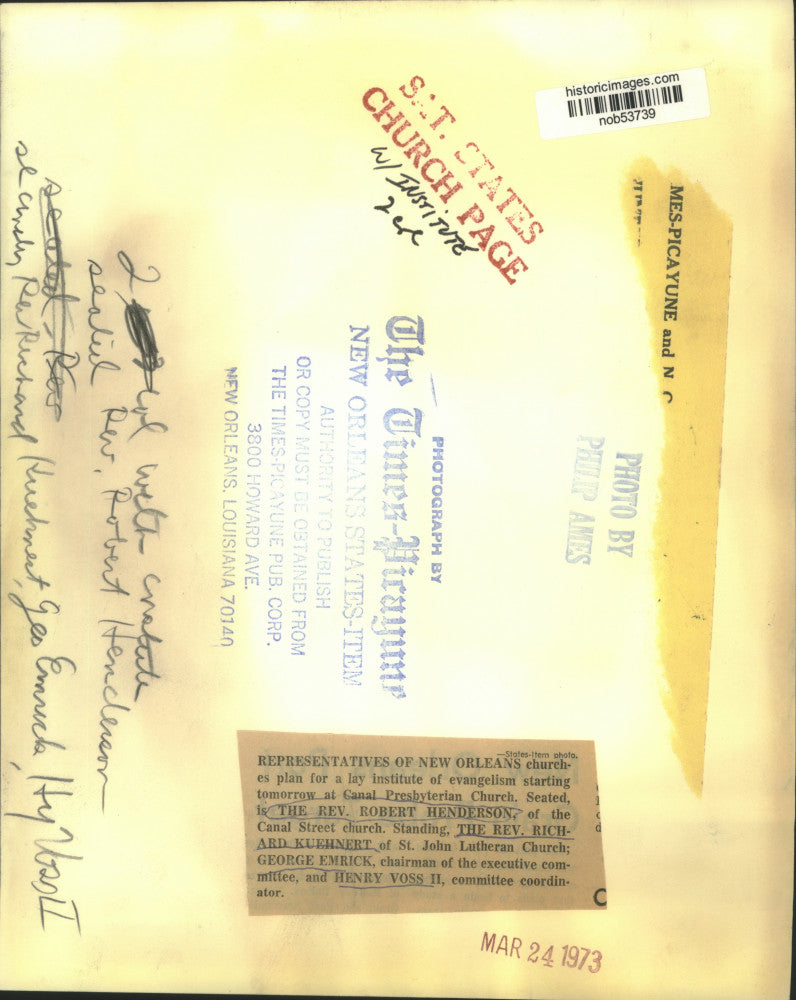 historicimages.com
nob53739
SAT. STATES
CHURCH PAGE
W/ INSTITUTE
2 col
MES-PICAYUNE and N
PHOTO BY
PHILIP AMES
PHOTOGRAPH BY
The Times-Picayune
NEW ORLEANS STATES-ITEM
AUTHORITY TO PUBLISH
OR COPY MUST BE OBTAINED FROM
THE TIMES-PICAYUNE PUB. CORP.
3800 HOWARD AVE.
NEW ORLEANS, LOUISIANA 70140
2 col with
seated Rev. Robert Henderson
seated, Rev
Rev Richard Kuehnert, Geo Emrick, Hy Voss II
—States-Item photo.
REPRESENTATIVES OF NEW ORLEANS church-
es plan for a lay institute of evangelism starting
tomorrow at Canal Presbyterian Church. Seated,
is THE REV. ROBERT HENDERSON, of the
Canal Street church. Standing, THE REV. RICH-
ARD KUEHNERT of St. John Lutheran Church;
GEORGE EMRICK, chairman of the executive com-
mittee, and HENRY VOSS II, committee coordin-
ator.
MAR 24 1973